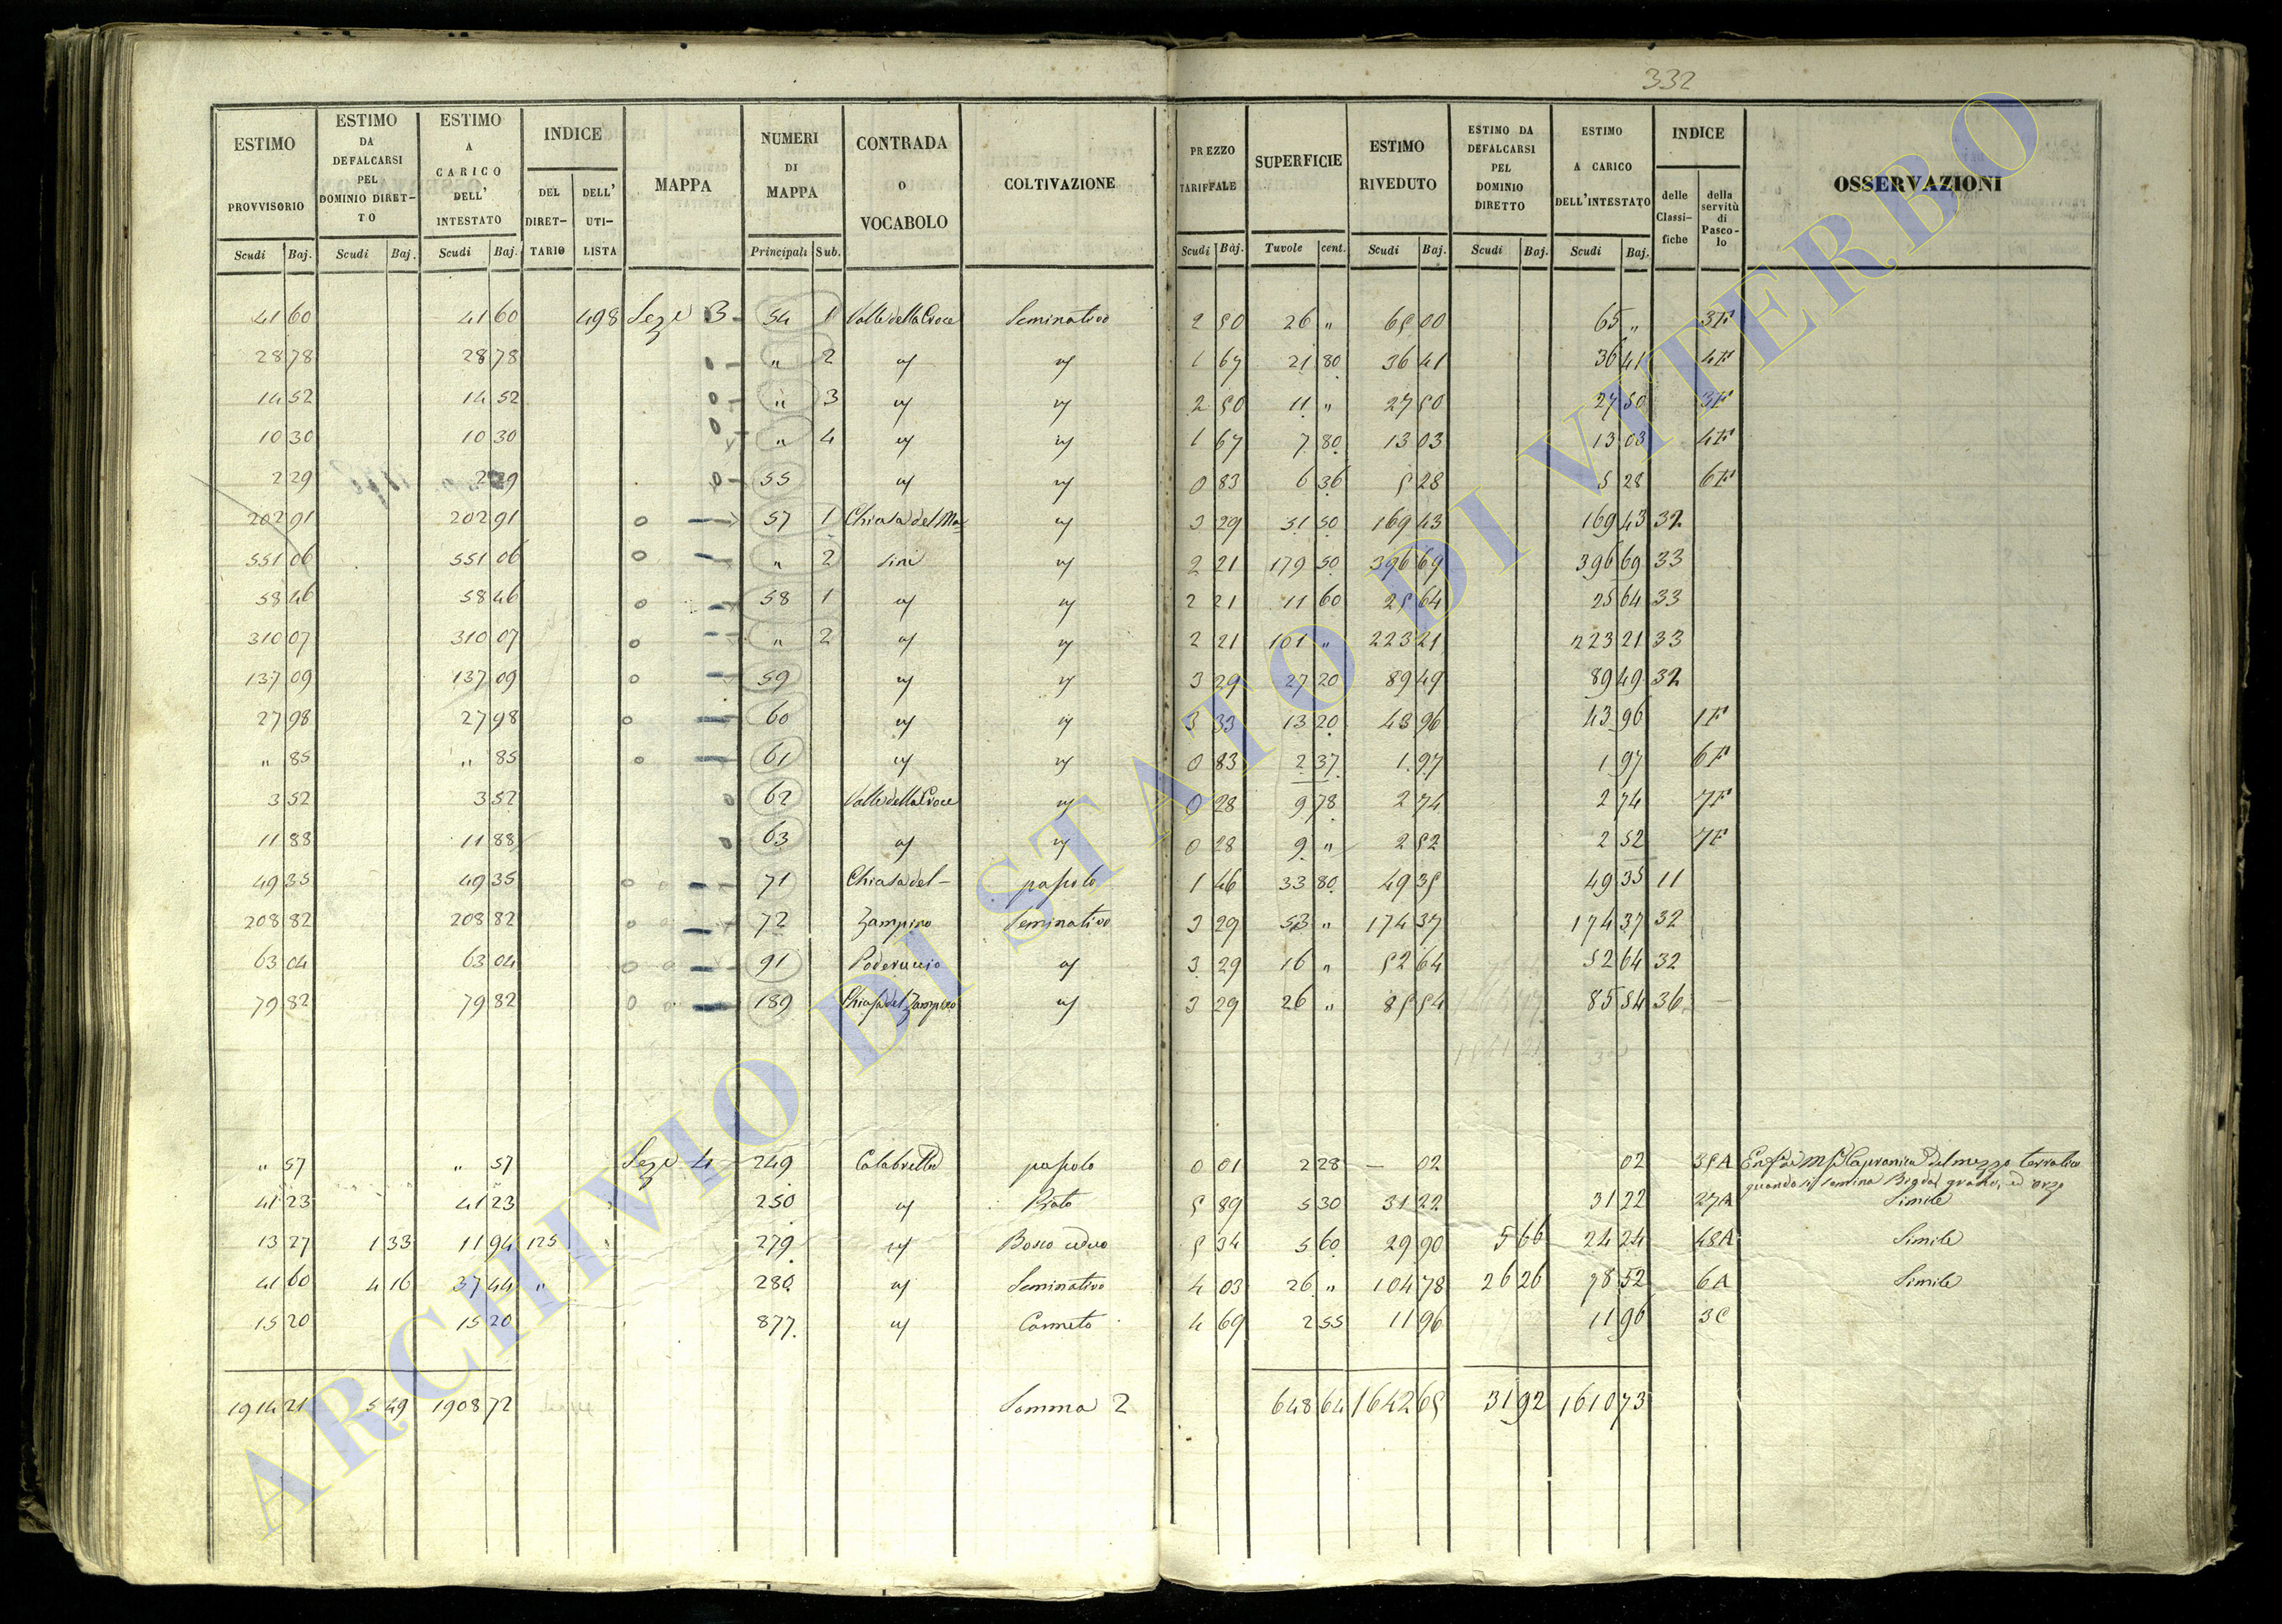 332
ESTIMO PROVVISORIO Scudi Baj. | ESTIMO DA DEFALCARSI PEL DOMINIO DIRET-TO Scudi Baj. | ESTIMO A CARICO DELL' INTESTATO Scudi Baj. | INDICE DEL DIRET-TARIO | DELL' UTI-LISTA | MAPPA | NUMERI DI MAPPA Principali Sub. | CONTRADA O VOCABOLO | COLTIVAZIONE | PREZZO TARIFFALE Scudi Baj. | SUPERFICIE Tavole cent. | ESTIMO RIVEDUTO Scudi Baj. | ESTIMO DA DEFALCARSI PEL DOMINIO DIRETTO Scudi Baj. | ESTIMO A CARICO DELL'INTESTATO Scudi Baj. | INDICE delle Classi-fiche | della servitù di Pasco-lo | OSSERVAZIONI
41 60 41 60 498 Seze 3 54 1 Valle della Croce Seminativo 2 50 26 " 65 00 65 " 3F
28 78 28 78 " 2 1 67 21 80 36 41 36 41 4F
14 52 14 52 " 3 2 50 11 " 27 50 27 50 3F
10 30 10 30 " 4 1 67 7 80 13 03 13 03 4F
2 29 2 29 55 0 83 6 36 5 28 5 28 6F
202 91 202 91 57 1 Chiusa del Ma- 3 29 51 50 169 43 169 43 32
551 06 551 06 " 2 sini 2 21 179 50 396 69 396 69 33
58 46 58 46 58 1 2 21 11 60 25 64 25 64 33
310 07 310 07 " 2 2 21 101 " 223 21 223 21 33
137 09 137 09 59 3 29 27 20 89 49 89 49 32
27 98 27 98 60 3 33 13 20 43 96 43 96 1F
" 85 " 85 61 0 83 2 37 1 97 1 97 6F
3 52 3 52 62 Valle della Croce 0 28 9 78 2 74 2 74 7F
11 88 11 88 63 0 28 9 " 2 52 2 52 7F
49 35 49 35 71 Chiusa del- pascolo 1 46 33 80 49 35 49 35 11
208 82 208 82 72 Zampino Seminativo 3 29 53 " 174 37 174 37 32
63 04 63 04 91 Poderuccio 3 29 16 " 52 64 52 64 32
79 82 79 82 189 Chiusa del Zampino 3 29 26 " 85 54 85 54 36
" 57 " 57 Seze 4 249 Calabrella pascolo 0 01 2 28 — 02 02 35A Capranica del mezzo terratico
quando si semina Biada, grano, ed orzo
41 23 41 23 250 Prato 5 89 5 30 31 22 31 22 27A Simile
13 27 1 33 11 94 125 279 Bosco ceduo 5 34 5 60 29 90 5 66 24 24 48A Simile
41 60 4 16 37 44 " 280 Seminativo 4 03 26 " 104 78 26 26 78 52 6A Simile
15 20 15 20 877 Canneto 4 69 2 55 11 96 11 96 3C
1914 21 5 49 1908 72 Somma 2 648 64 1642 65 31 92 1610 73
ARCHIVIO DI STATO DI VITERBO